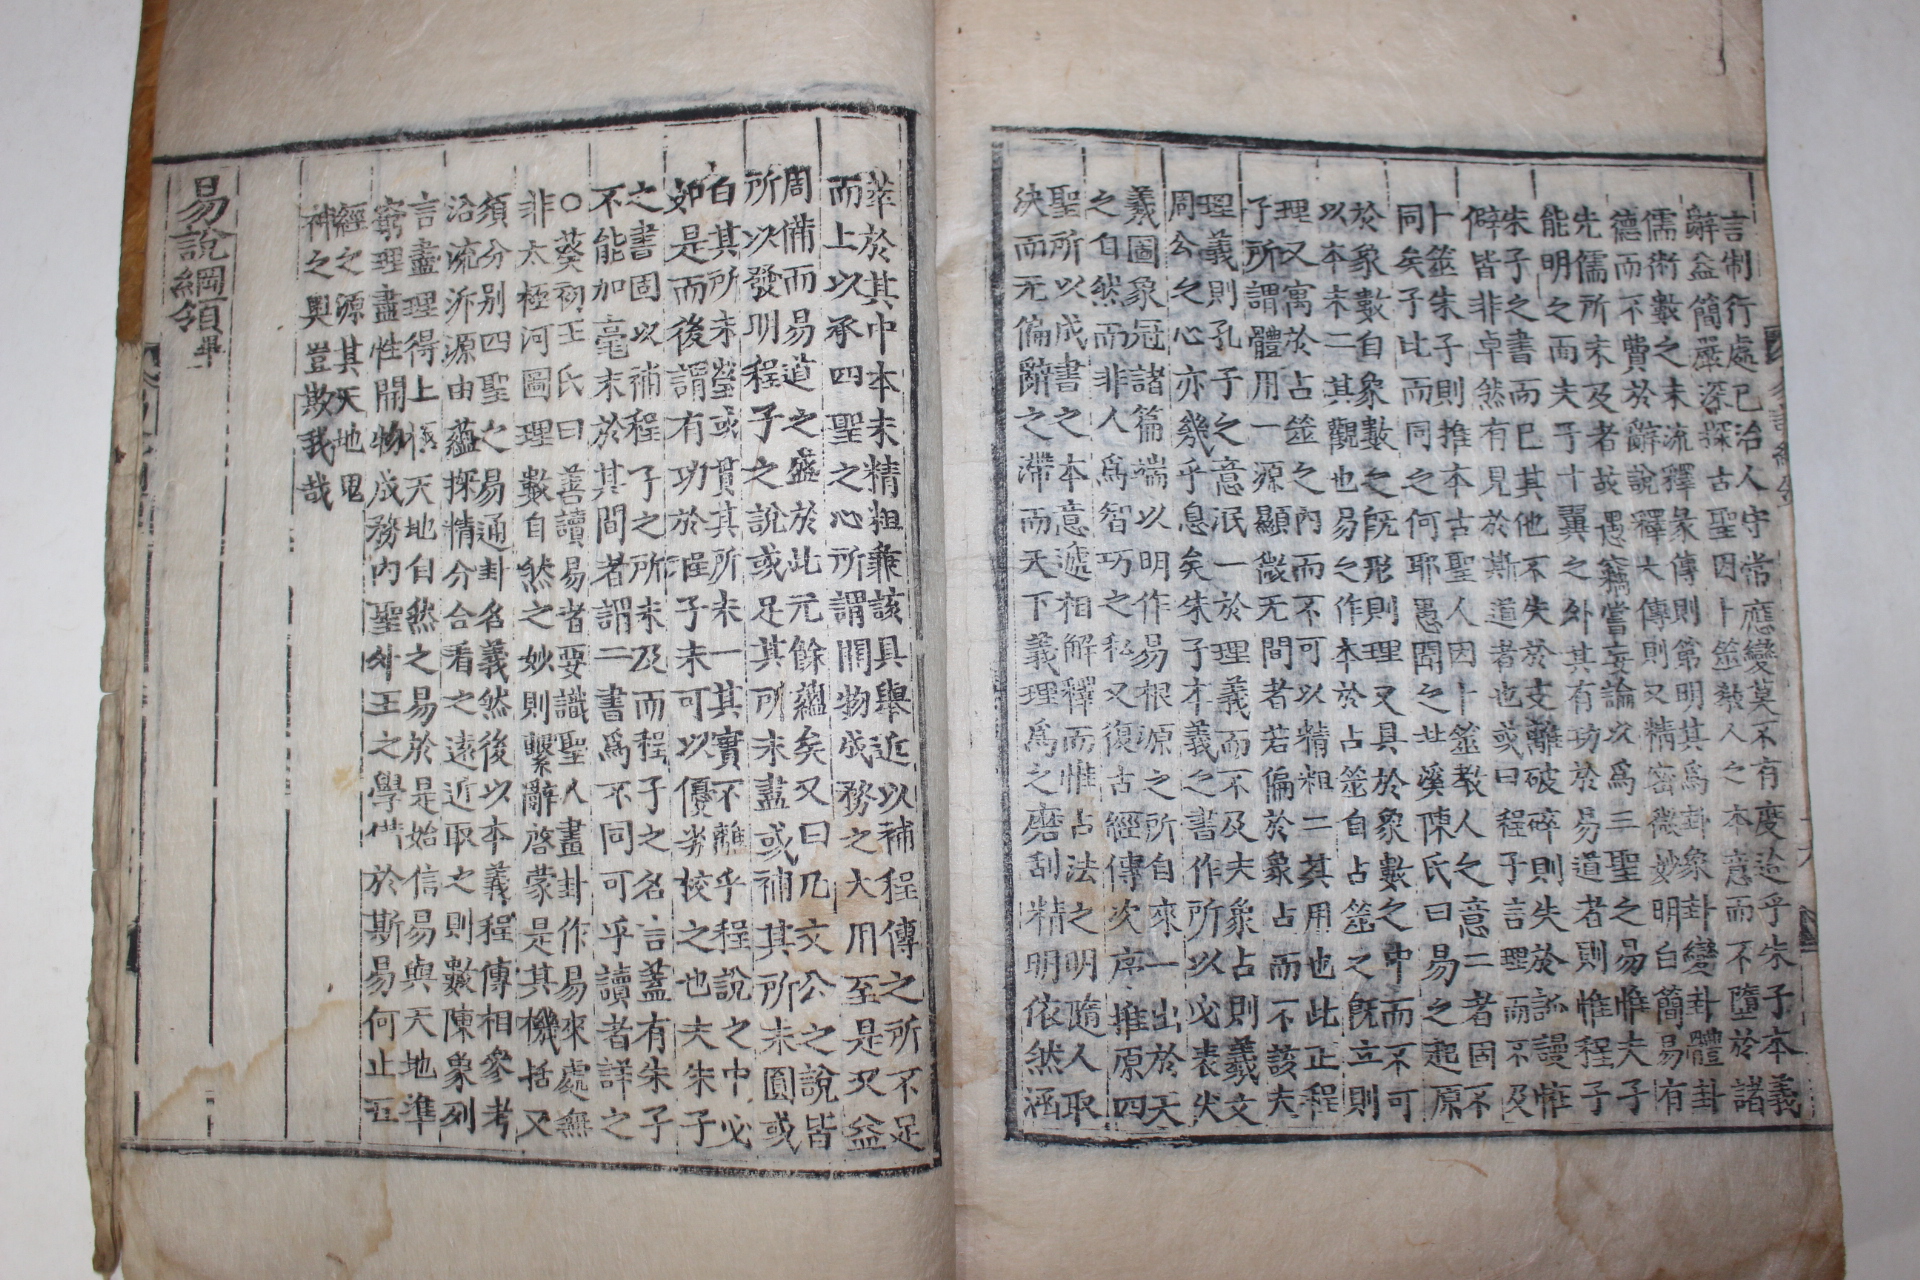 言制行處已治人守常應變莫不有度迨乎朱子本義
辭益簡嚴深探古聖因卜筮敎人之本意而不墮於諸
儒術數之末流釋彖傳則第明其爲卦象卦變卦體卦
德而不費於辭說釋大傳則又精密微妙明白簡易有
先儒所未及者故愚竊嘗妄論以爲三聖之易惟夫子
能明之而夫子十翼之外其有功於易道者則惟程子
朱子之書而已其他不失於支離破碎則失於訛謾恠
僻皆非卓然有見於斯道者也或曰程子言理而不及
卜筮朱子則推本古聖人因卜筮敎人之意二者固不
同矣子比而同之何耶愚聞之廿溪陳氏曰易之起原
於象數自象數之旣形則理又具於象數之中而不可
以本末二其觀也易之作本於占筮自占筮之旣立則
理又寓於占筮之內而不可以精粗二其用也此正程
子所謂體用一源顯微无間者若偏於象占而不該夫
理義則孔子之意泯一於理義而不及夫象占則羲文
周公之心亦幾乎息矣朱子本義之書作所以必表伏
羲圖象冠諸篇端以明作易根源之所自來一出於天
之自然而非人爲智巧之私又復古經傳次序推原四
聖所以成書之本意遞相解釋而惟占法之明隨人取
決而无偏辭之滯而天下義理爲之磨刮精明依然涵
萃於其中本末精粗兼該具舉近以補程傳之所不足
而上以承四聖之心所謂開物成務之大用至是又益
周備而易道之盛於此无餘蘊矣又曰凡文公之說皆
所以發明程子之說或足其所未盡或補其所未圓或
白其所未瑩或貫其所未一其實不離乎程說之中必
如是而後謂有功於程子未可以優劣校之也夫朱子
之書固以補程子之所未及而程子之名言蓋有朱子
不能加毫末於其間者謂二書爲不同可乎讀者詳之
○葵初王氏曰善讀易者要識聖人畫卦作易來處無
非太極河圖理數自然之妙則繫辭啓蒙是其機括又
須分別四聖之易通卦名義然後以本義程傳相參考
沿流泝源由蘊探情分合看之遠近取之則數陳象列
言盡理得上極天地自然之易於是始信易與天地準
窮理盡性開物成務內聖外王之學備於斯易何止五
經之源其天地鬼
神之奧豈欺我哉
易說綱領畢